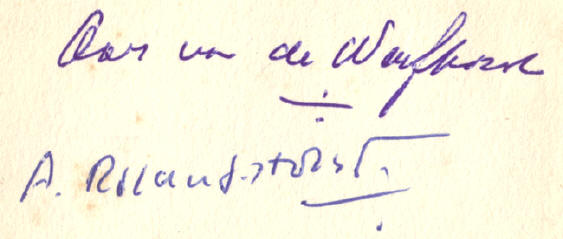 Aar van de Werfhorst
A. Roland Holst.